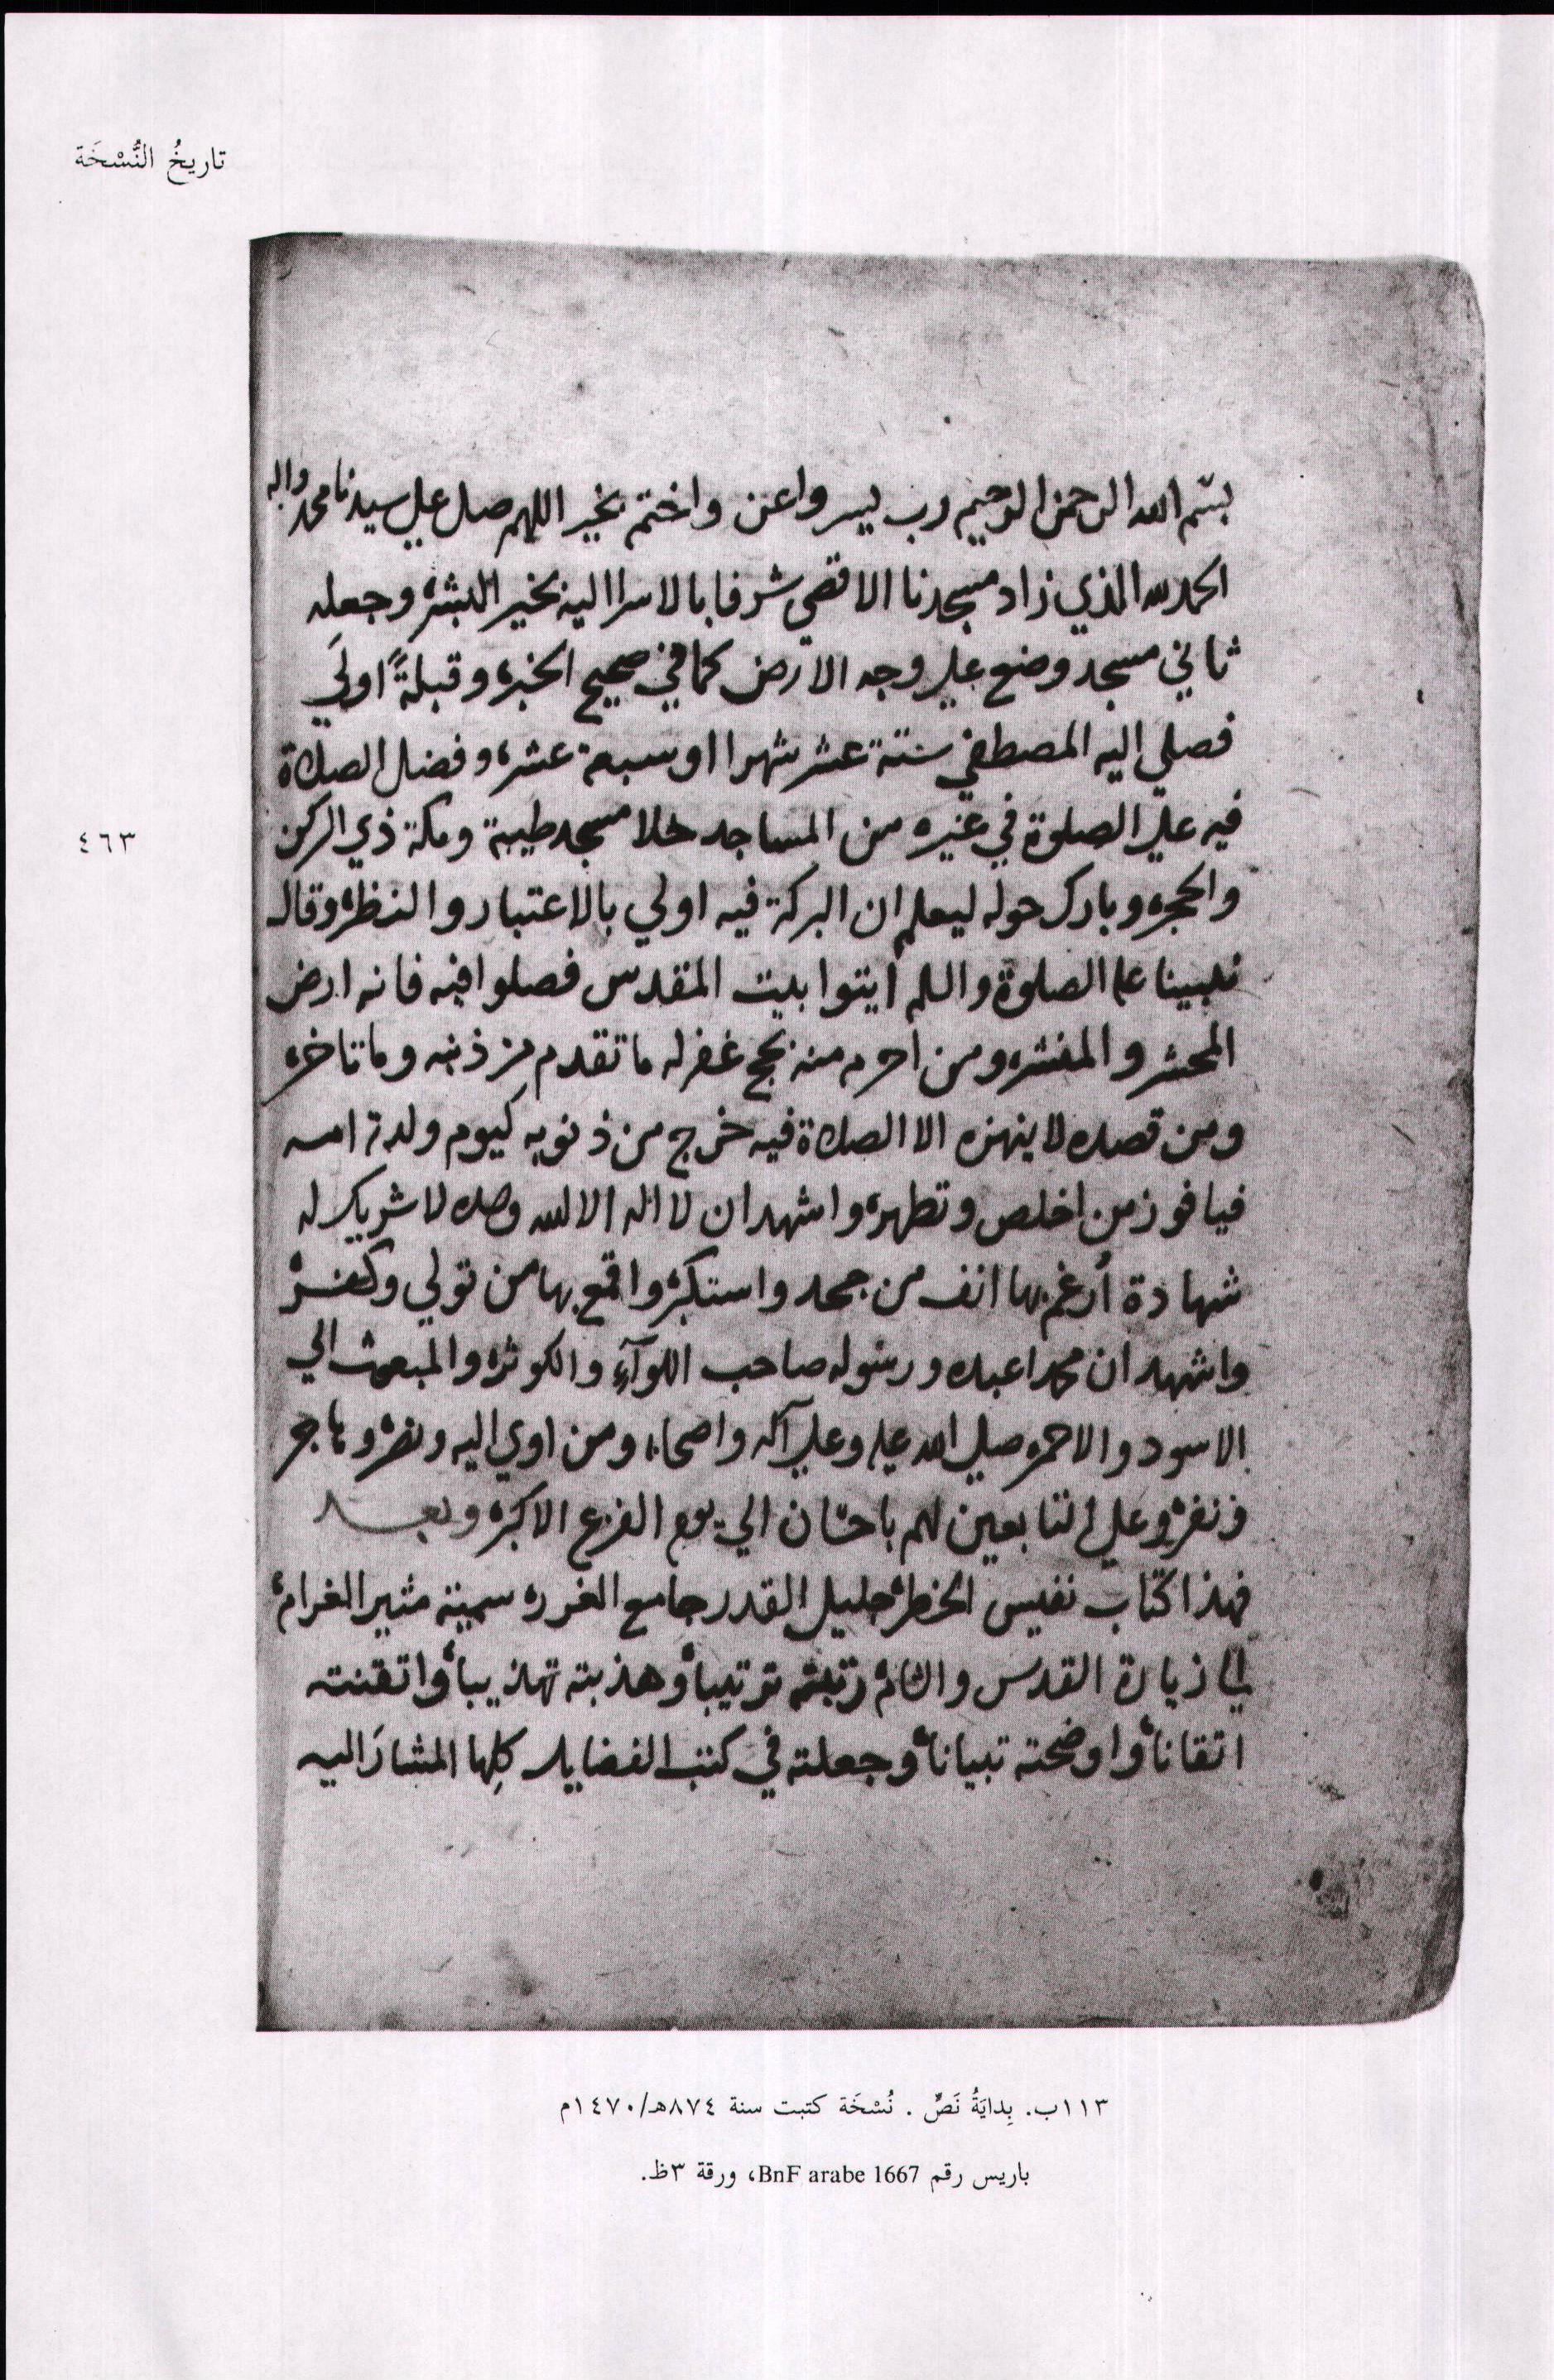 تاريخُ النُّسْخَة
بسم الله الرحمن الرحيم رب يسر واعن واختم بخير اللهم صل علي سيدنا محمد واله
الحمد لله الذي زاد مسجدنا الاقصي شرفا بالاسرا اليه بخير البشر وجعله
ثاني مسجد وضع علي وجه الارض كما في صحيح الخبر وقبلةً اولَي
فصلي اليه المصطفي ستة عشر شهرا او سبعة عشر وفضل الصلاة
فيه علي الصلوة في غيره من المساجد خلا مسجد طيبة ومكة ذي الركن
والحجر وبارك حوله ليعلم ان البركة فيه اولي بالاعتبار والنظر وقال
نبينا عليه الصلوة والسلم ايتوا بيت المقدس فصلوا فيه فانه ارض
المحشر والمنشر ومن احرم منه بحج غفر له ما تقدم من ذنبه وما تاخر
ومن قصده لا ينهزه الا الصلاة فيه خرج من ذنوبه كيوم ولدته امه
فيا فوز من اخلص وتطهر واشهد ان لا اله الا الله وحده لا شريك له
شهادة أرغم بها انف من جحد واستكبر واقمع بها من تولي وكفر
واشهد ان محمدا عبده ورسوله صاحب اللوآءِ والكوثر والمبعوث الي
الاسود والاحمر صلي الله عليه وعلي آله واصحابه ومن اوي اليه ونصر وهاجر
ونفر وعلي التابعين لهم باحسان الي يوم الفزع الاكبر وبعد
فهذا كتاب نفيس الخطر جليل القدر جامع الغرر سميته مثير الغرام
الي زيارة القدس والشام رتبته ترتيبا وهذبته تهذيبا واتقنته
اتقانا واوضحته تبيانا وجعلته في كتب الفضايل كلِها المشارَ اليه
٤٦٣
١١٣ب. بِدايَةُ نَصٍّ . نُسْخَة كتبت سنة ٨٧٤هـ/١٤٧٠م
باريس رقم BnF arabe 1667، ورقة ٣ظ.